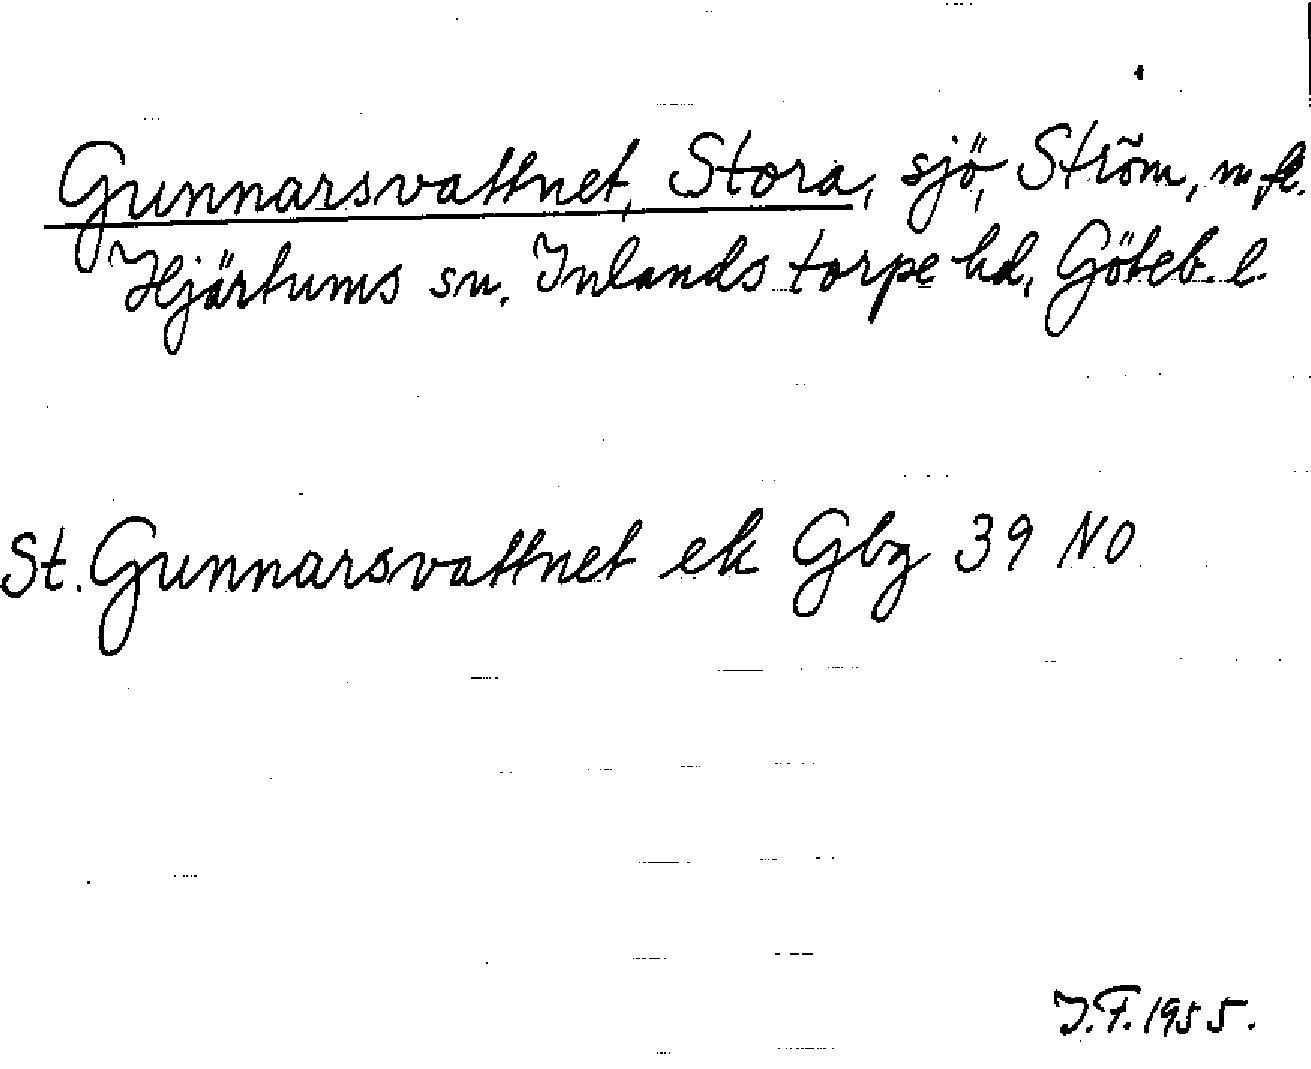 Gunnarsvattnet, Stora, sjö, Ström, m fl.
Hjärtums sn. Inlands torpe hd, Göteb. l.
St. Gunnarsvattnet ek Gbg 39 NO
I.F. 1955.